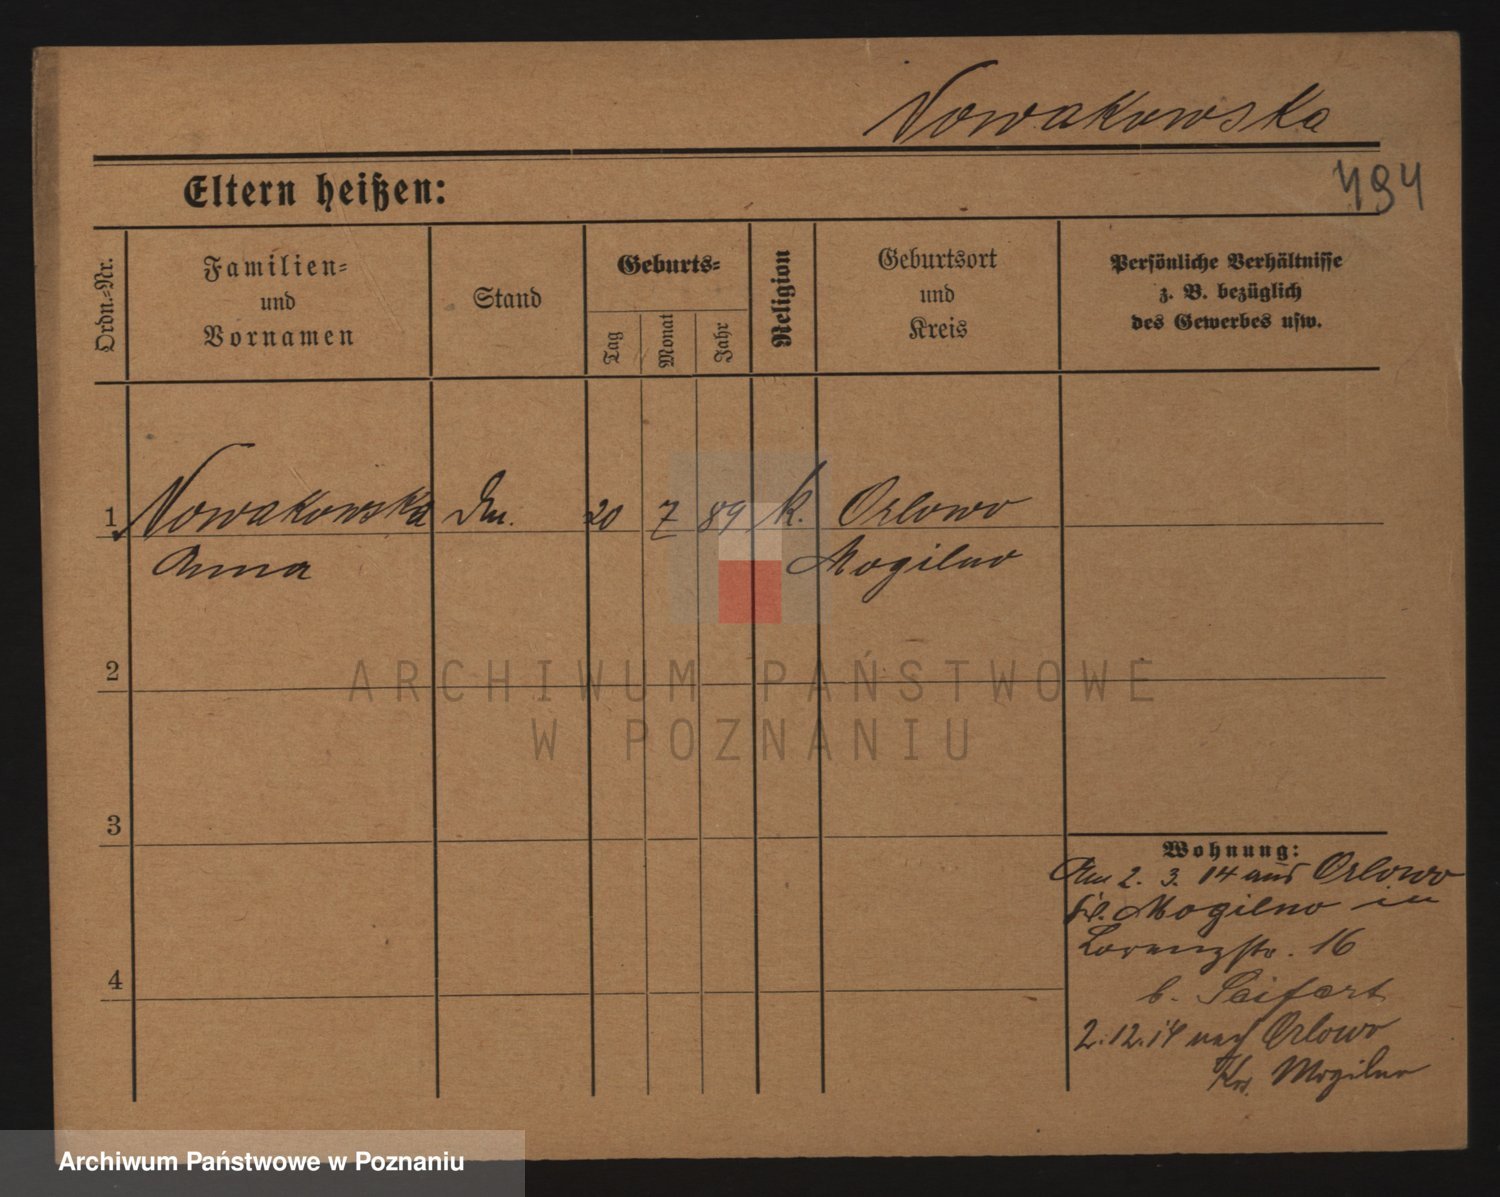 Nowakowska
494
Eltern heißen:
Ordn.-Nr.
Familien-
und
Vornamen
Stand
Geburts-
Tag
Monat
Jahr
Religion
Geburtsort
und
Kreis
Persönliche Verhältnisse
z. B. bezüglich
des Gewerbes usw.
1 Nowakowska 20 7 89 k. Orlowo
Anna Mogilno
2
3
4
Wohnung:
Am 2. 3. 14 aus Orlowo
Mogilno in
Lorenzstr. 16
b. Seifert
2.12.14 nach Orlowo
Krs. Mogilno
ARCHIWUM PAŃSTWOWE
W POZNANIU
Archiwum Państwowe w Poznaniu